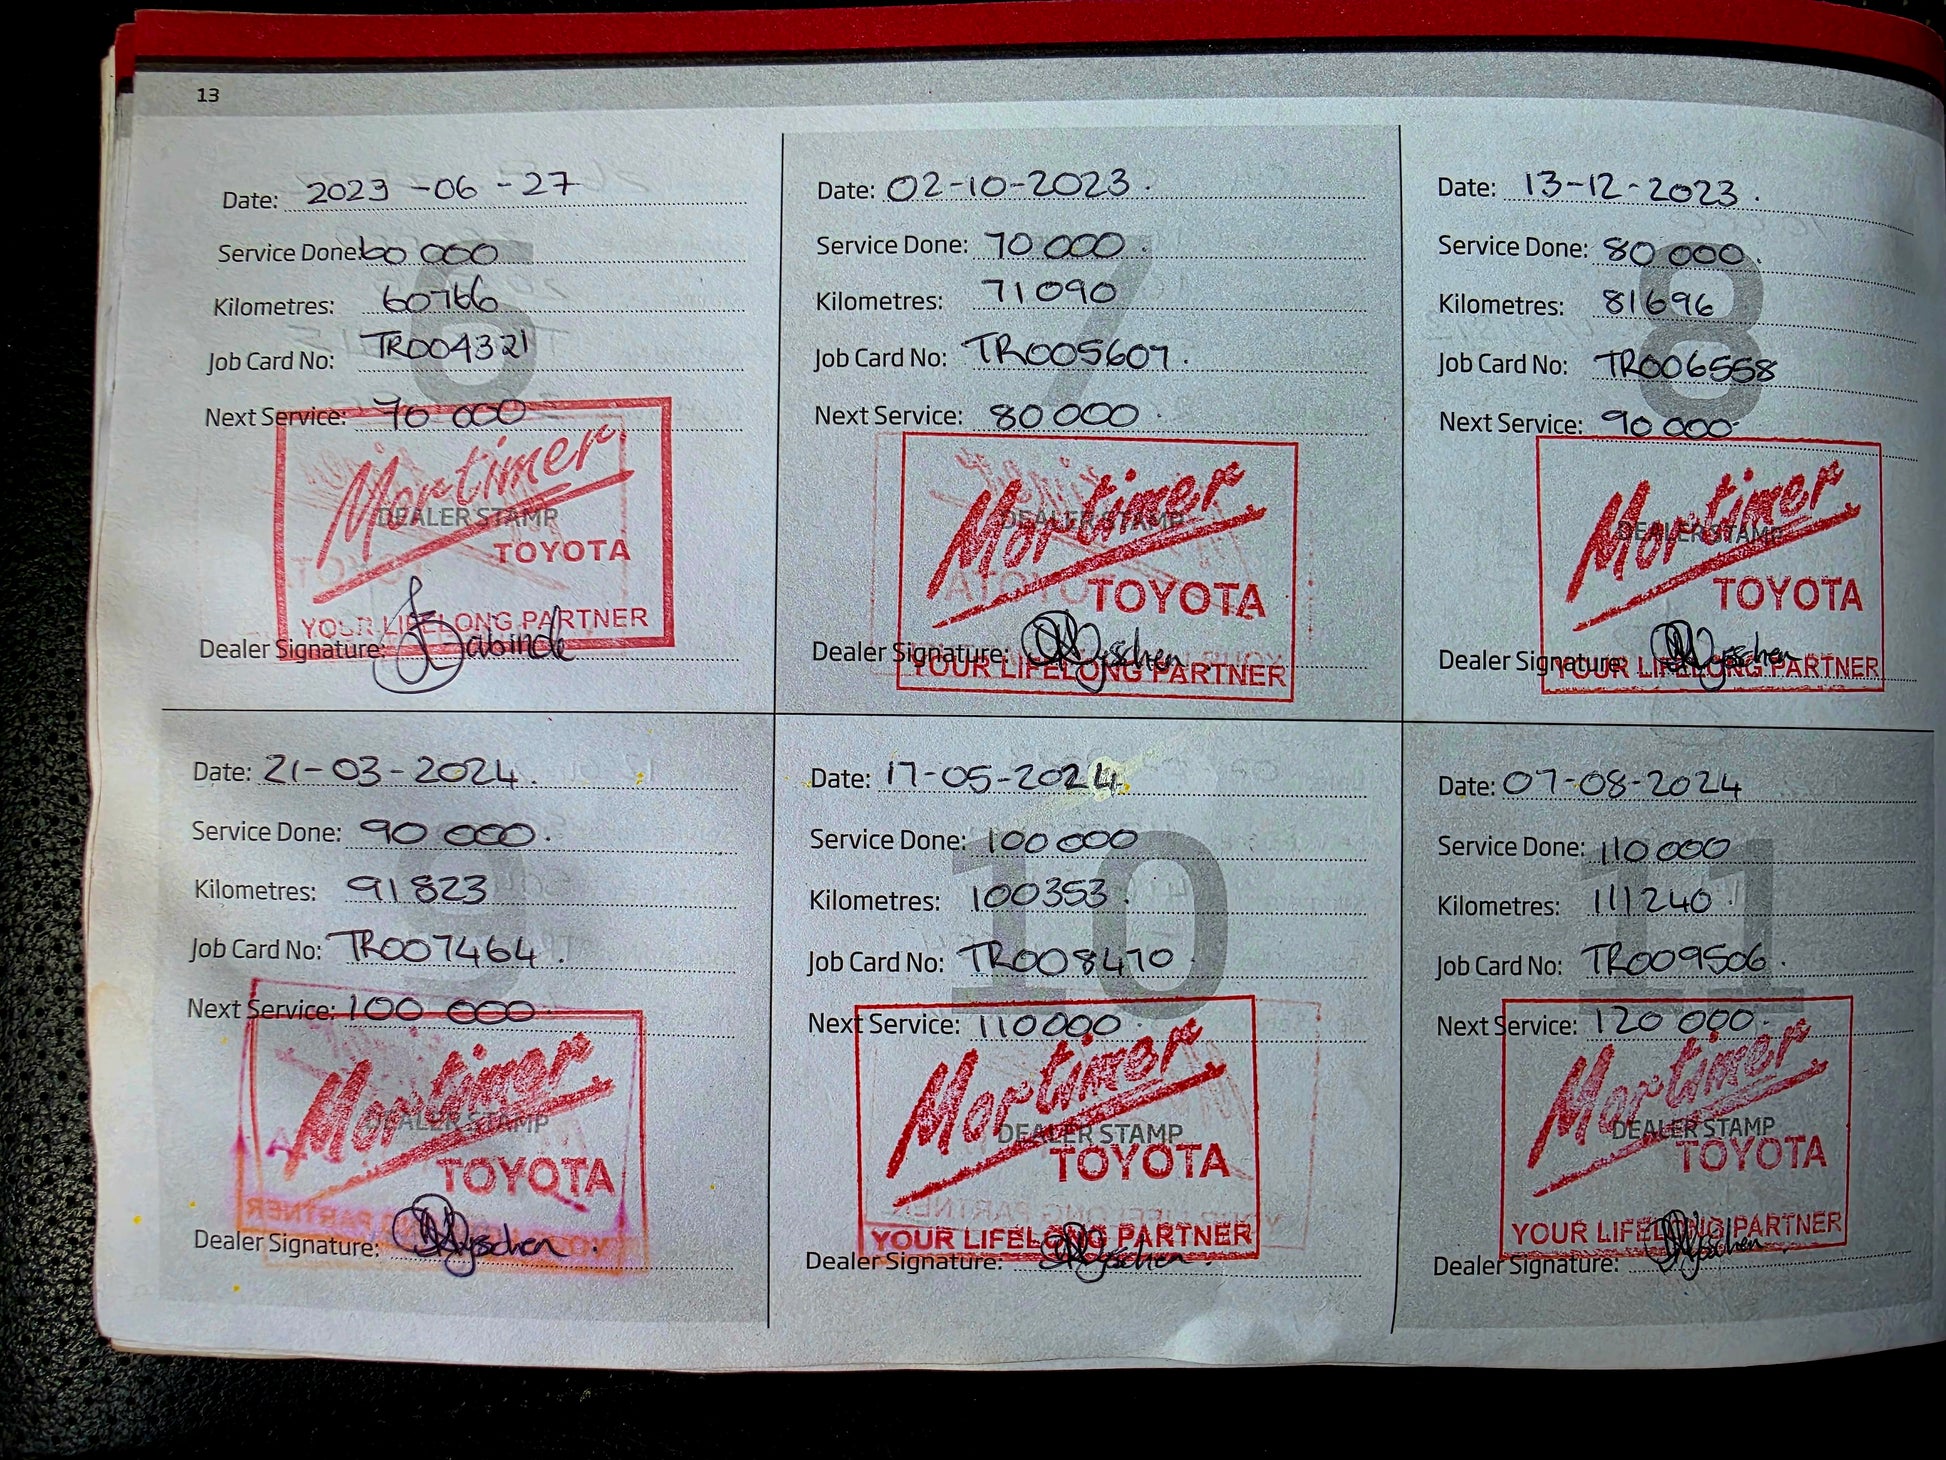 13
Date: 2023-06-27
Service Done: 60 000
Kilometres: 60766
Job Card No: TR004321
Next Service: 70 000
Mortimer
DEALER STAMP
TOYOTA
YOUR LIFELONG PARTNER
Dealer Signature:
Date: 02-10-2023.
Service Done: 70 000.
Kilometres: 71090
Job Card No: TR005607.
Next Service: 80 000.
Mortimer
DEALER STAMP
TOYOTA
Dealer Signature:
YOUR LIFELONG PARTNER
Date: 13-12-2023.
Service Done: 80 000.
Kilometres: 81696
Job Card No: TR006558
Next Service: 90 000.
Mortimer
DEALER STAMP
TOYOTA
Dealer Signature:
YOUR LIFELONG PARTNER
Date: 21-03-2024.
Service Done: 90 000.
Kilometres: 91823
Job Card No: TR007464.
Next Service: 100 000.
Mortimer
DEALER STAMP
TOYOTA
Dealer Signature:
Date: 17-05-2024.
Service Done: 100 000
Kilometres: 100353.
Job Card No: TR008470.
Next Service: 110000.
Mortimer
DEALER STAMP
TOYOTA
YOUR LIFELONG PARTNER
Dealer Signature:
Date: 07-08-2024
Service Done: 110 000
Kilometres: 111240.
Job Card No: TR009506.
Next Service: 120 000.
Mortimer
DEALER STAMP
TOYOTA
YOUR LIFELONG PARTNER
Dealer Signature:
6
7
8
9
10
11